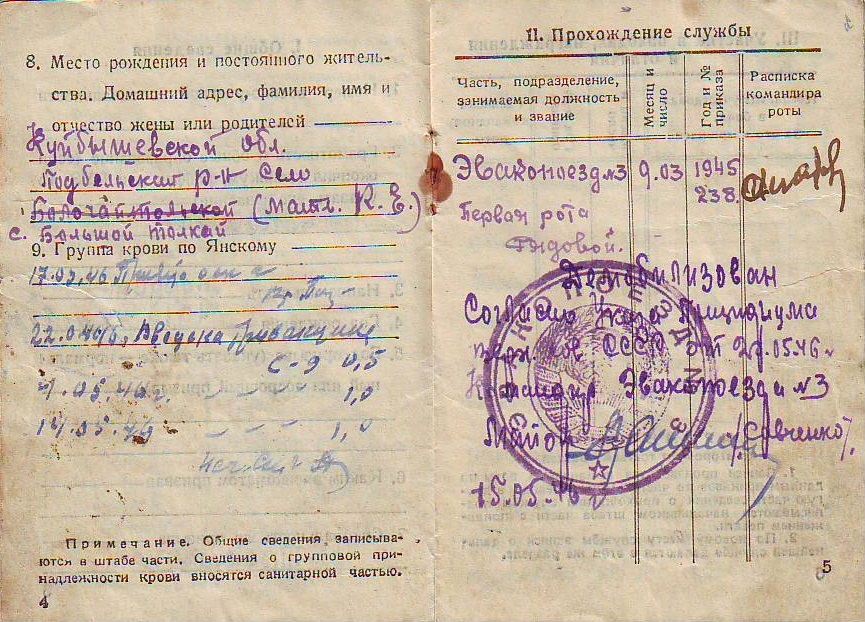 8. Место рождения и постоянного житель-
ства. Домашний адрес, фамилия, имя и
отчество жены или родителей
Куйбышевской обл.
Подбельский р-н село
(Мать. К. Е.)
с. Большой Толкай
9. Группа крови по Янскому
17.03.46
С-9 0,5
7.05.46г. — " — 1,0
— " — 1,0
Примечание. Общие сведения, записыва-
ются в штабе части. Сведения о групповой при-
надлежности крови вносятся санитарной частью.
4
II. Прохождение службы
Часть, подразделение,
занимаемая должность
и звание
Месяц и
число
Год и №
приказа
Расписка
командира
роты
Эвакопоезд №3 9.03 1945
238.
Первая рота
Рядовой.
Демобилизован
Согласно Указа Президиума
Верх СССР от 20.05.46г.
Командир Эвакопоезда №3
Майор /Савченко/.
15.05.46г
5